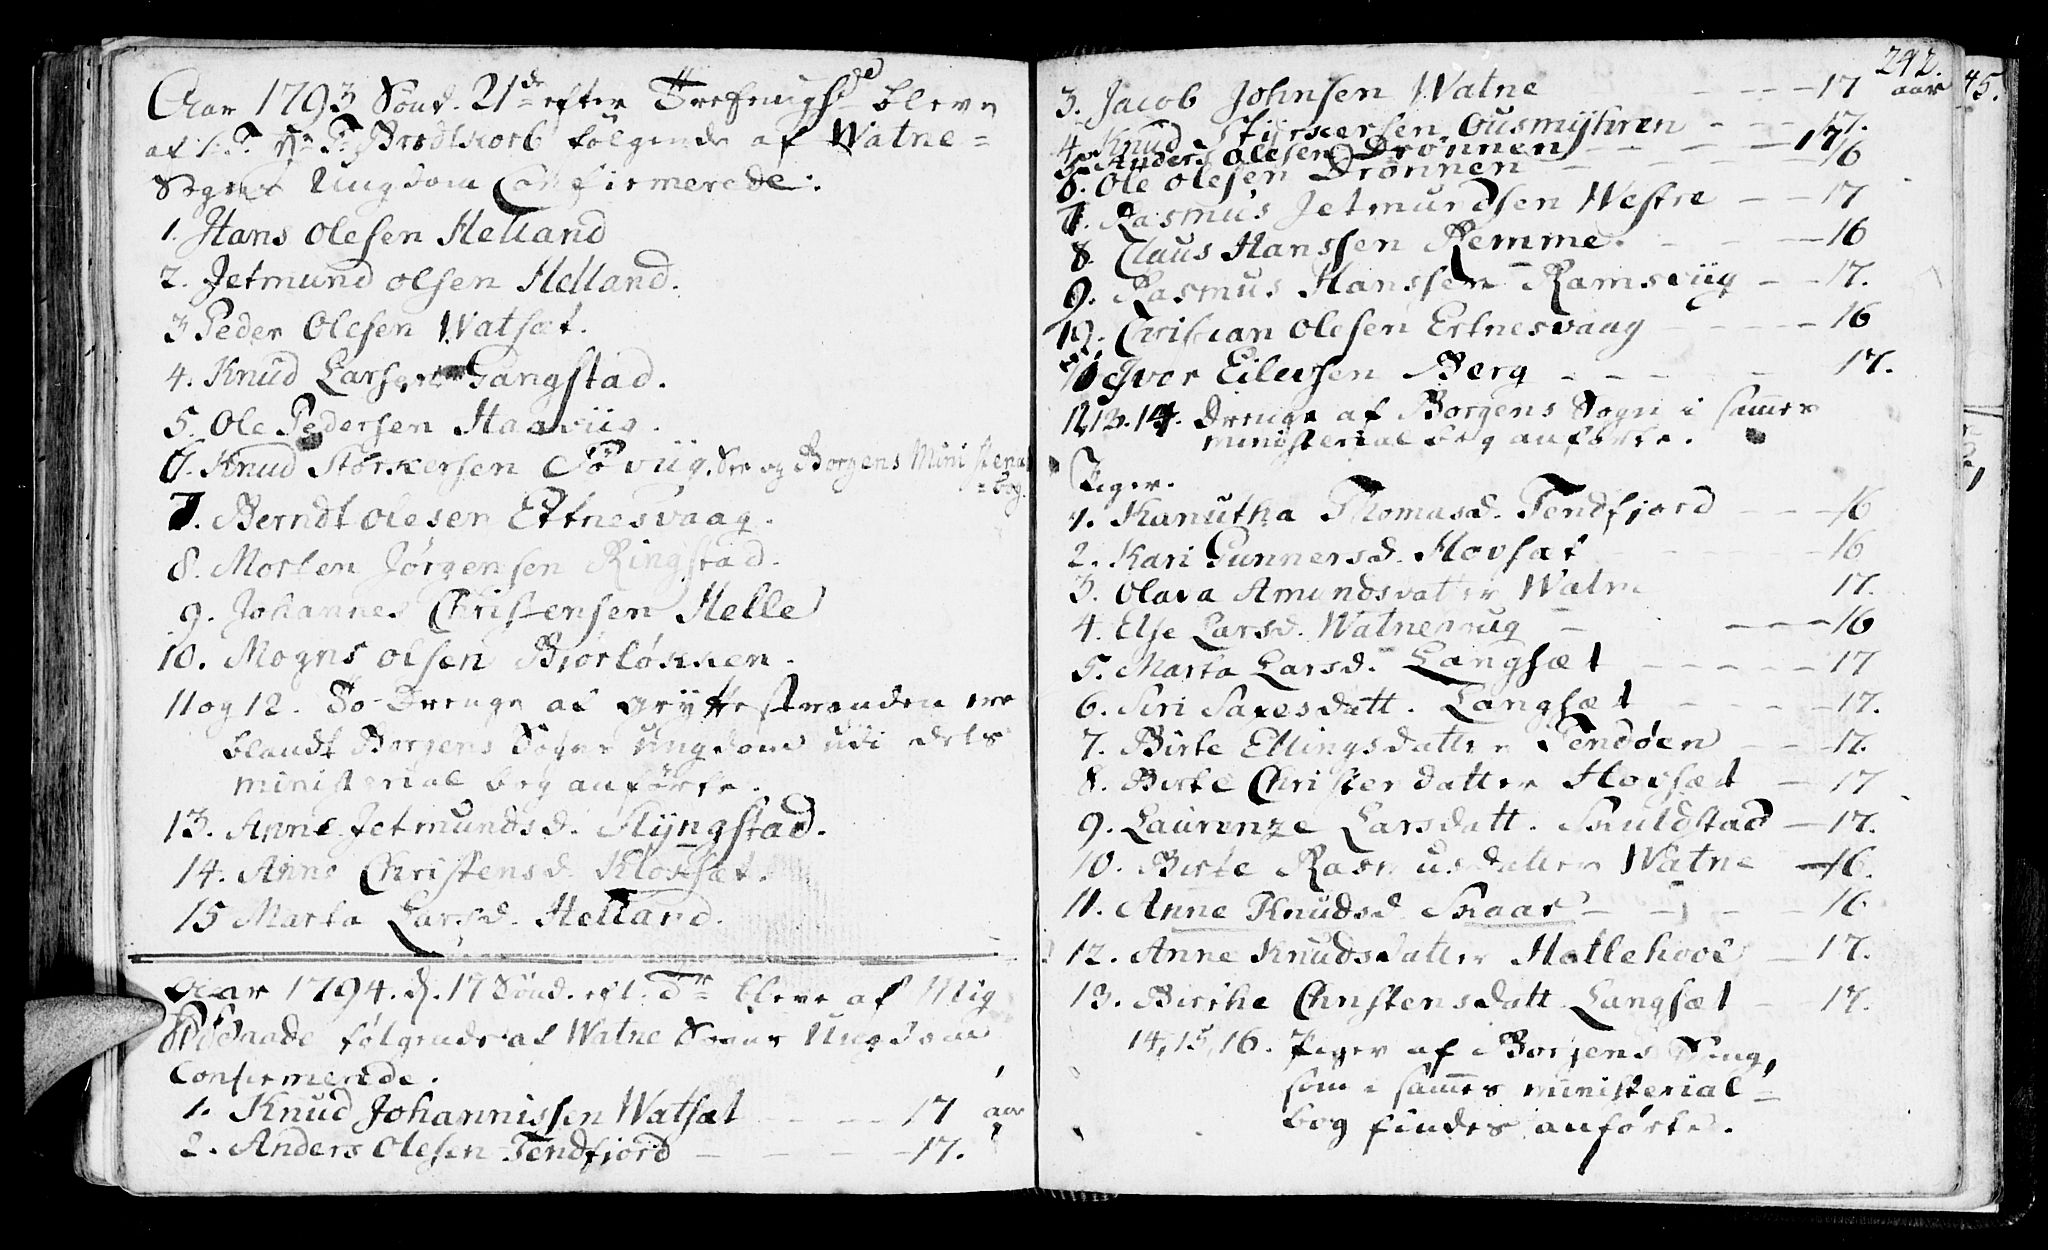 Aar 1793 Sönd. 21de efter Trefough bleve
af Hr Brodtkorb følgende af Watne=
Sogns Ungdom Confirmerede.
1. Hans Olesen Helland
2. Jetmund olsen Helland.
3 Peder Olesen Watsæt.
4. Knud Larsen Gangstad.
5. Ole Pedersen Haaviig.
6. Knud Störkersen Söviig. See og Borgens Ministerial
=bog.
7. Berndt olesen Ertnesvaag.
8. Morten Jørgensen Ringstad.
9. Johannes Christensen Helle
10. Mogns olsen Biørløkken.
11 og 12. To Drenge af Gryttestranden ere
blandt Borgens Sogns Ungdom udi dets
ministerial bog anførte.
13. Anne Jetmundsd. Slyngstad.
14. Anne Christensd. Klokset.
15 Marta Larsd. Helland.
Aar 1794. d. 17 Sönd. eft. Tr bleve af Mig
følgende af Watne Sogns Ungdom
Confirmerede.
1. Knud Johannissen Watsæt - - - 17 aar
2. Anders Olesen Tendfiord - - - - 17.
242.
3. Jacob Johnsen Watne - - - 17 aar
4. Knud Styrkersen Ousmyhren - - - 17.
5. Anders olesen Drønnen - - - 17
6. Ole olesen Drønnen - - - 16
7. Rasmus Jetmundsen Westre - - 17
8. Claus Hanssen Remme. - - - 16
9. Rasmus Hanssen Ramsviig - - 17.
10. Christian olesen Ertnesvaag - - - - 16
11 Iver Eilersen Berg - - - - - 17.
12, 13. 14. Drenge af Borgens Sogn i sammes
ministerialbog anførte.
Piger.
1. Kanutha Thomasd. Tendfjord - - - 16
2. Kari Gunnersd. Hovsæt - - - - 16
3. Olava Amundsdatter Watne 17.
4. Else Larsd. Watne - - - - 16
5. Marta Larsd. Langsæt - - - - - 17
6. Siri Saxesdatt. Langsæt - - - - 17.
7. Birte Ellingsdatter Tendøen - - 17.
8. Birte Christensdatter Hovsæt - 17
9. Laurenze Larsdatt. Skuldstad - 17.
10. Birte Rasmusdatter Watne - 16.
11. Anne Knudsd Skaar - - - - 16
12. Anne Knudsdatter Hallehooe - 17.
13. Birthe Christensdatt. Langsæt - 17.
14, 15, 16. Piger af Borgens Sogn,
som i sammes ministerial=
bog findes anførte.